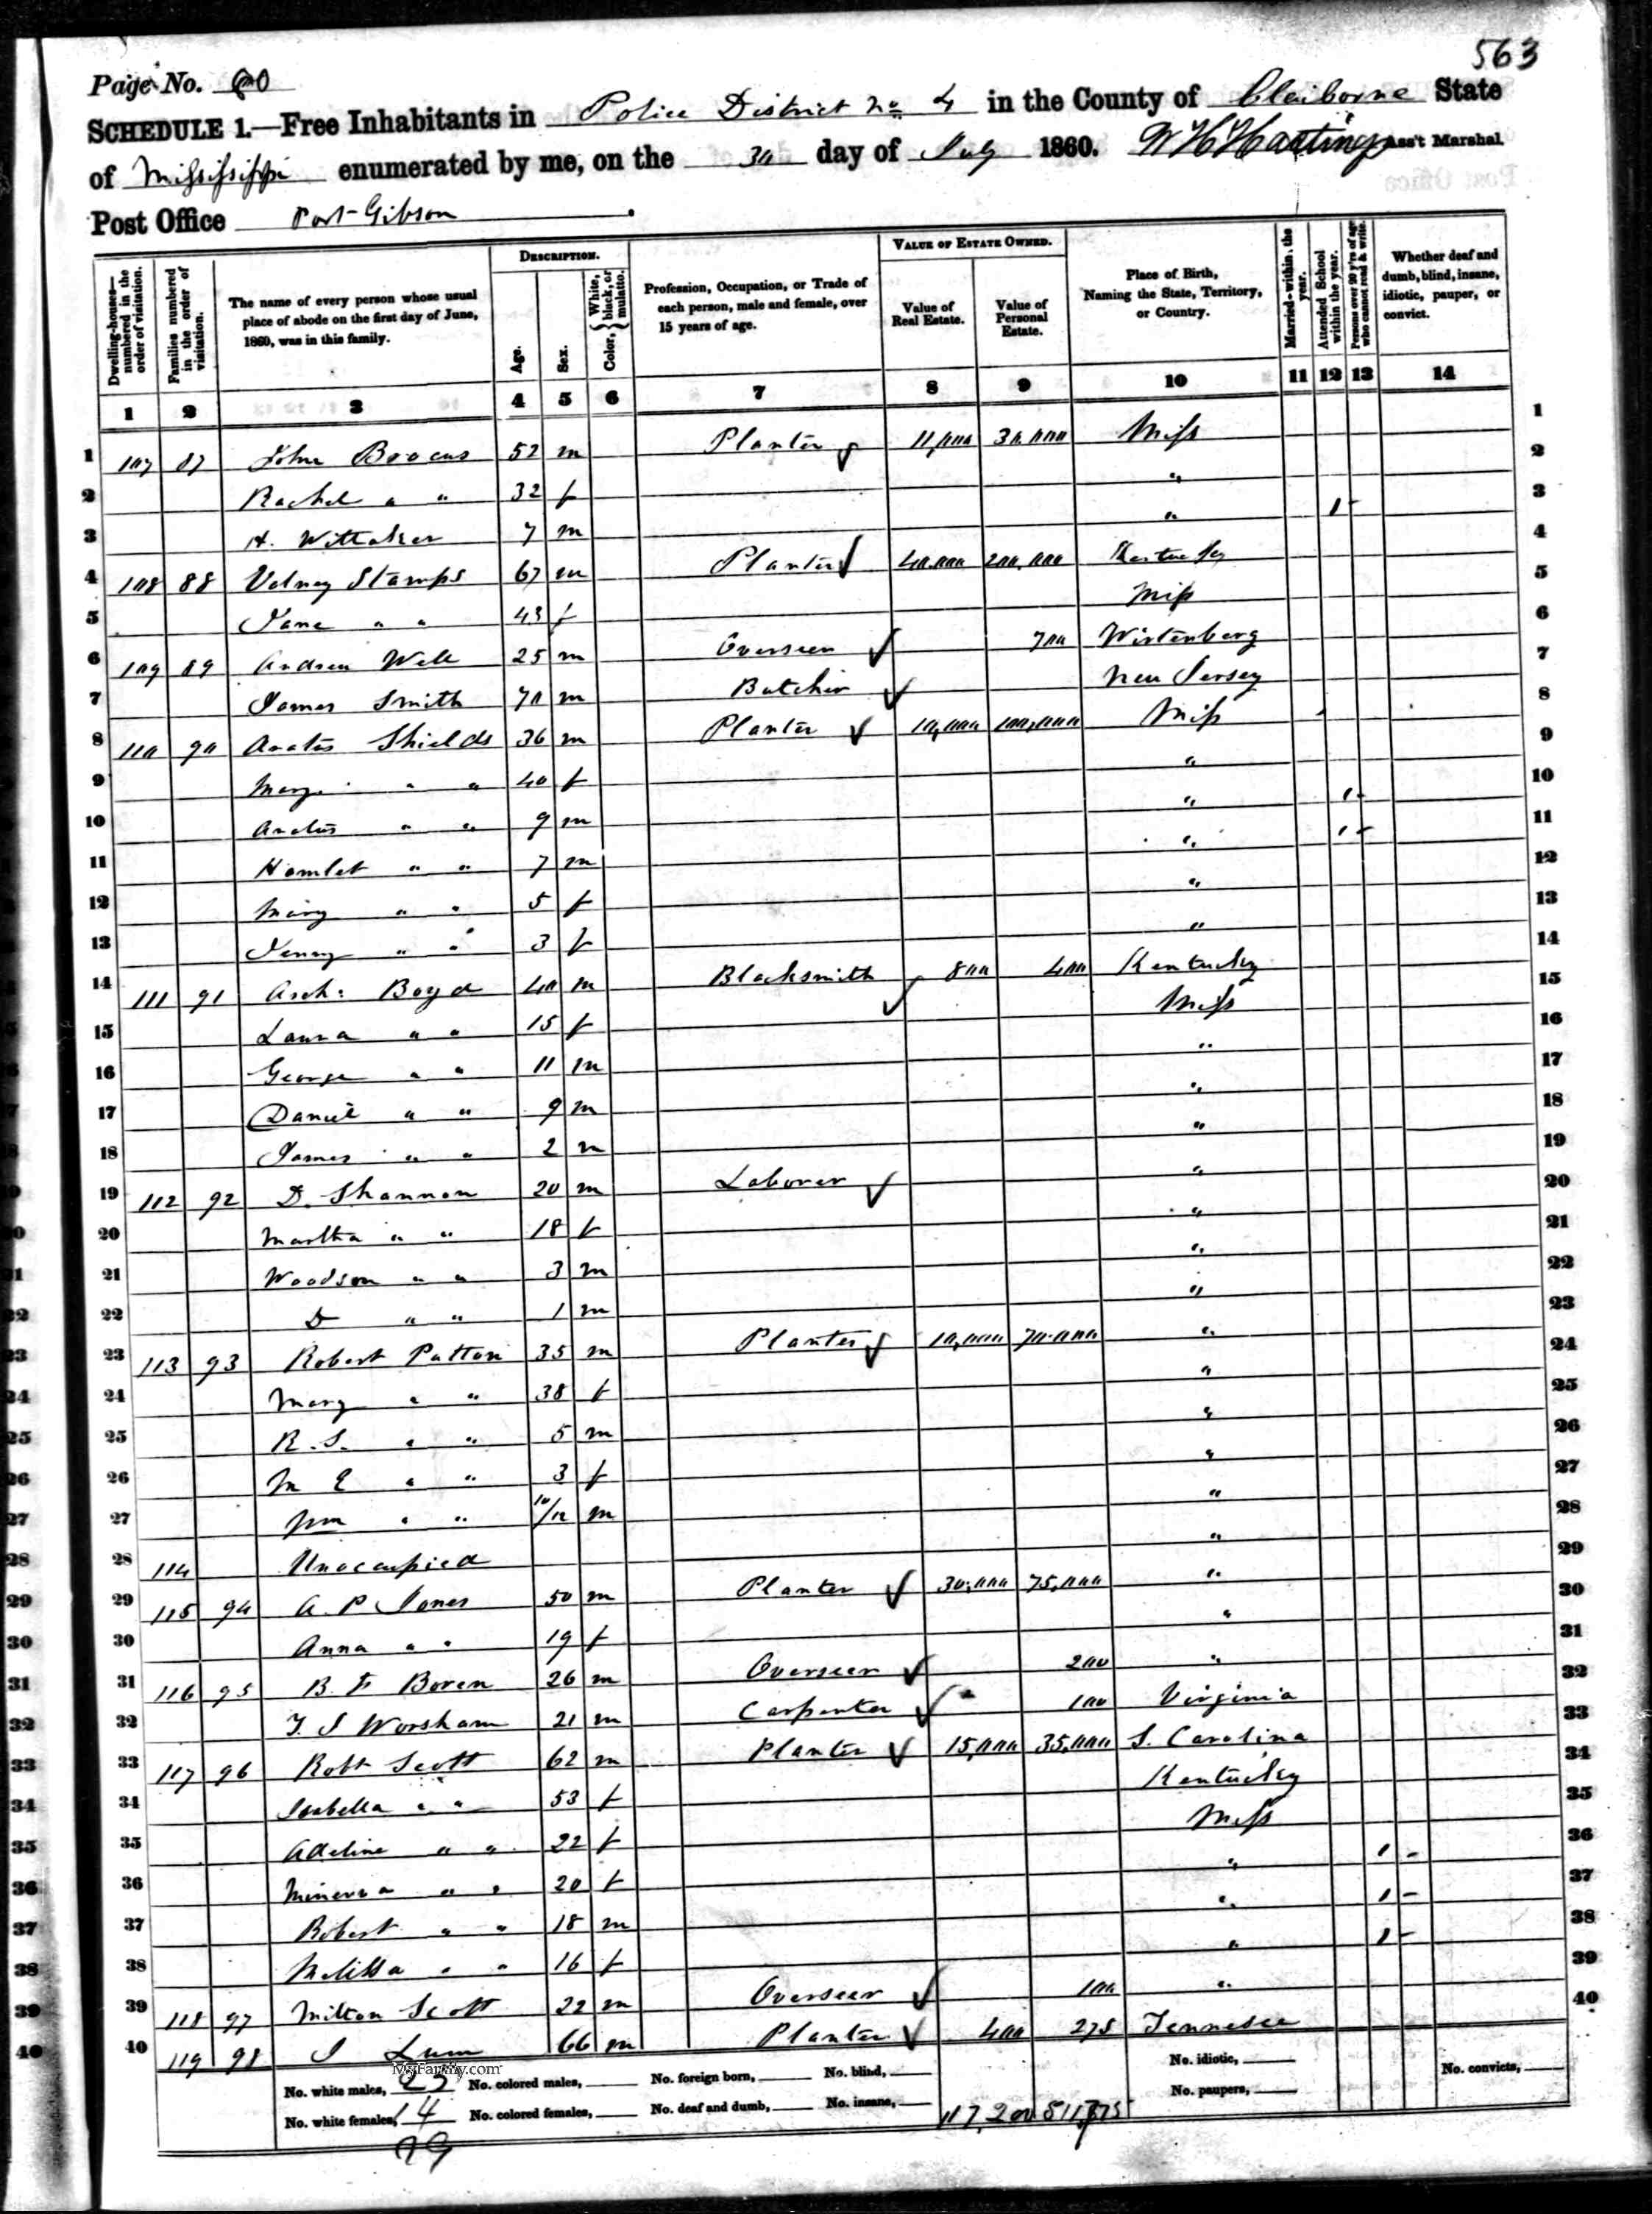 563
Page No. 60
SCHEDULE 1.—Free Inhabitants in Police District No 4 in the County of Claiborne State
of Mississippi enumerated by me, on the 30 day of July 1860. W H Hastings Ass't Marshal
Post Office Port-Gibson
Dwelling-houses—numbered in the order of visitation. Families numbered in the order of visitation. The name of every person whose usual place of abode on the first day of June, 1860, was in this family. DESCRIPTION. Age. Sex. Color, { White, black, or mulatto. Profession, Occupation, or Trade of each person, male and female, over 15 years of age. VALUE OF ESTATE OWNED. Value of Real Estate. Value of Personal Estate. Place of Birth, Naming the State, Territory, or Country. Married within the year. Attended School within the year. Persons over 20 y'rs of age who cannot read & write. Whether deaf and dumb, blind, insane, idiotic, pauper, or convict.
1 2 3 4 5 6 7 8 9 10 11 12 13 14
1 107 87 John 52 m Planter 11,000 30,000 Miss 1
2 Rachel " " 32 f " 2
3 H. Wittaker 7 m " 1 3
4 108 88 Volney Stamps 67 m Planter 40,000 200,000 Kentucky 4
5 Jane " " 43 f Miss 5
6 109 89 Andrew 25 m Overseer 700 Wirtenberg 6
7 James Smith 70 m Butcher New Jersey 7
8 110 90 Shields 36 m Planter 10,000 100,000 Miss 8
9 Mary " " 40 f " 9
10 " " 9 m " 1 10
11 Hamlet " " 7 m " 1 11
12 Mary " " 5 f " 12
13 Jenny " " 3 f " 13
14 111 91 Arch: Boyd 40 m Blacksmith 800 400 Kentucky 14
15 Laura " " 15 f Miss 15
16 George " " 11 m " 16
17 Daniel " " 9 m " 17
18 James " " 2 m " 18
19 112 92 D. Shannon 20 m Laborer " 19
20 Martha " " 18 f " 20
21 Woodson " " 3 m " 21
22 D " " 1 m " 22
23 113 93 Robert Patton 35 m Planter 10,000 70,000 " 23
24 Mary " " 38 f " 24
25 R. S. " " 5 m " 25
26 M E " " 3 f " 26
27 Wm " " 10/12 m " 27
28 114 Unoccupied " 28
29 115 94 A. P. Jones 50 m Planter 30,000 75,000 " 29
30 Anna " " 19 f " 30
31 116 95 B. F. Boren 26 m Overseer 200 " 31
32 T. J Worsham 21 m Carpenter 100 Virginia 32
33 117 96 Robt Scott 62 m Planter 15,000 35,000 S. Carolina 33
34 Isabella " " 53 f Kentucky 34
35 Adeline " " 22 f Miss 35
36 Minerva " " 20 f " 1 36
37 Robert " " 18 m " 1 37
38 Melissa " " 16 f " 1 38
39 118 97 Milton Scott 22 m Overseer 100 " 39
40 119 98 J Lum 66 m Planter 400 275 Tennesee 40
MyFamily.com
No. white males, 25 No. colored males, No. foreign born, No. blind, No. idiotic, No. convicts,
No. white females, 14 No. colored females, No. deaf and dumb, No. insane, 117,200 511,775 No. paupers,
39